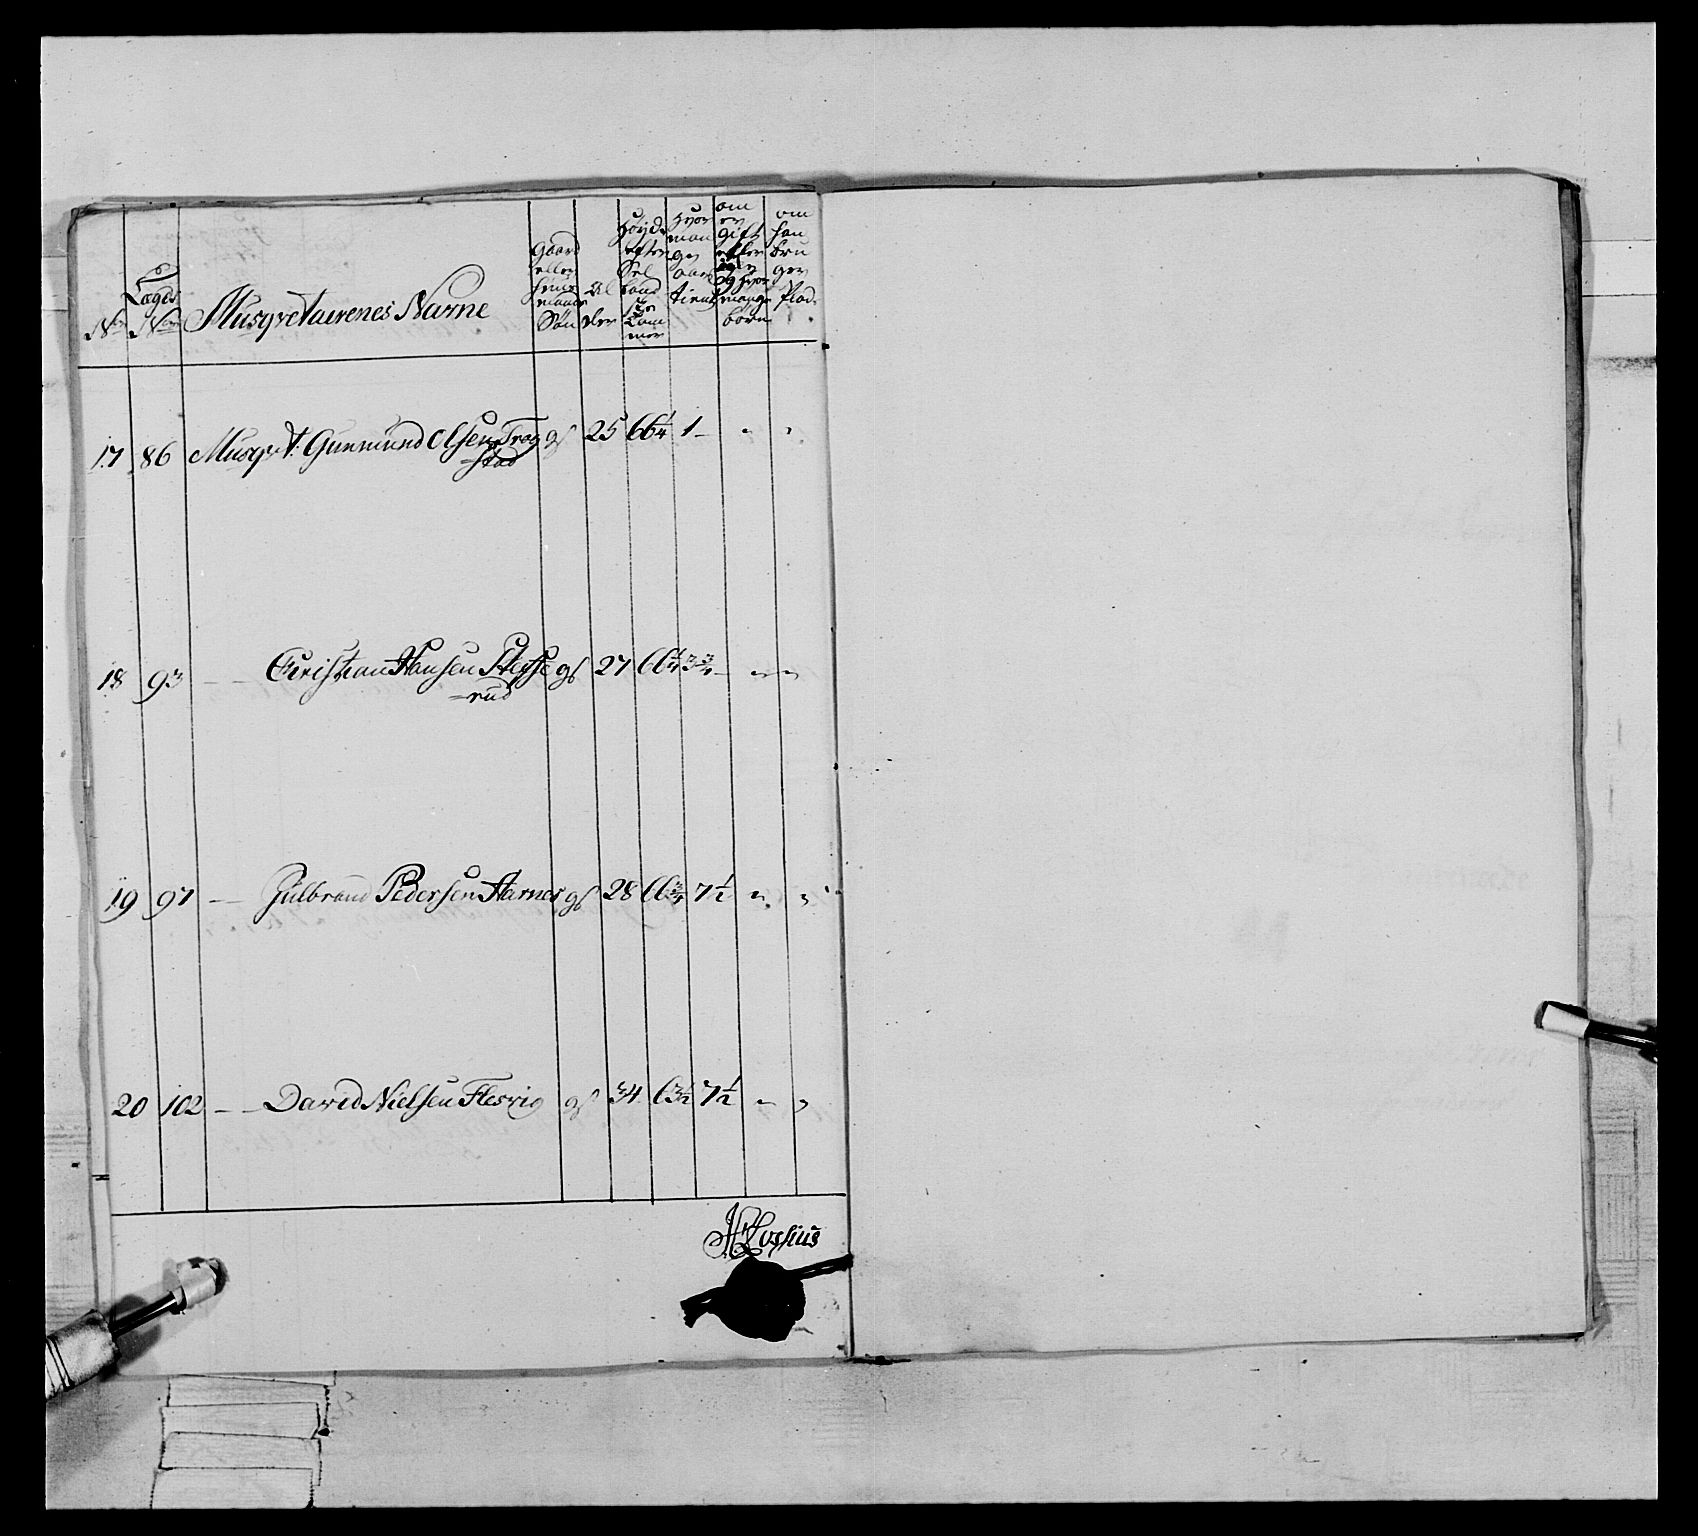 No
Lægds No
Musqvetairenes Nafne
Gaard eller Huus mands Søn
Alder
Høyde efter Sel land ske Tom mer
Hvor man ge aar tient
om er gift eller ey og hvor mange børn
om han bru ger Plads
17 86 Musqvt. Gunmund Olsen Trog gs 25 66¼ 1 - " "
=stad
18 93 - - Christian Hansen gs 27 66¼ 3¾ - " "
=rud
19 97 - - Gulbrand Pedersen Aarnes gs 28 66¾ 7½ " "
20 102 - - David Nielsen Flesvig gs 34 63½ 7½ " "
Lossius